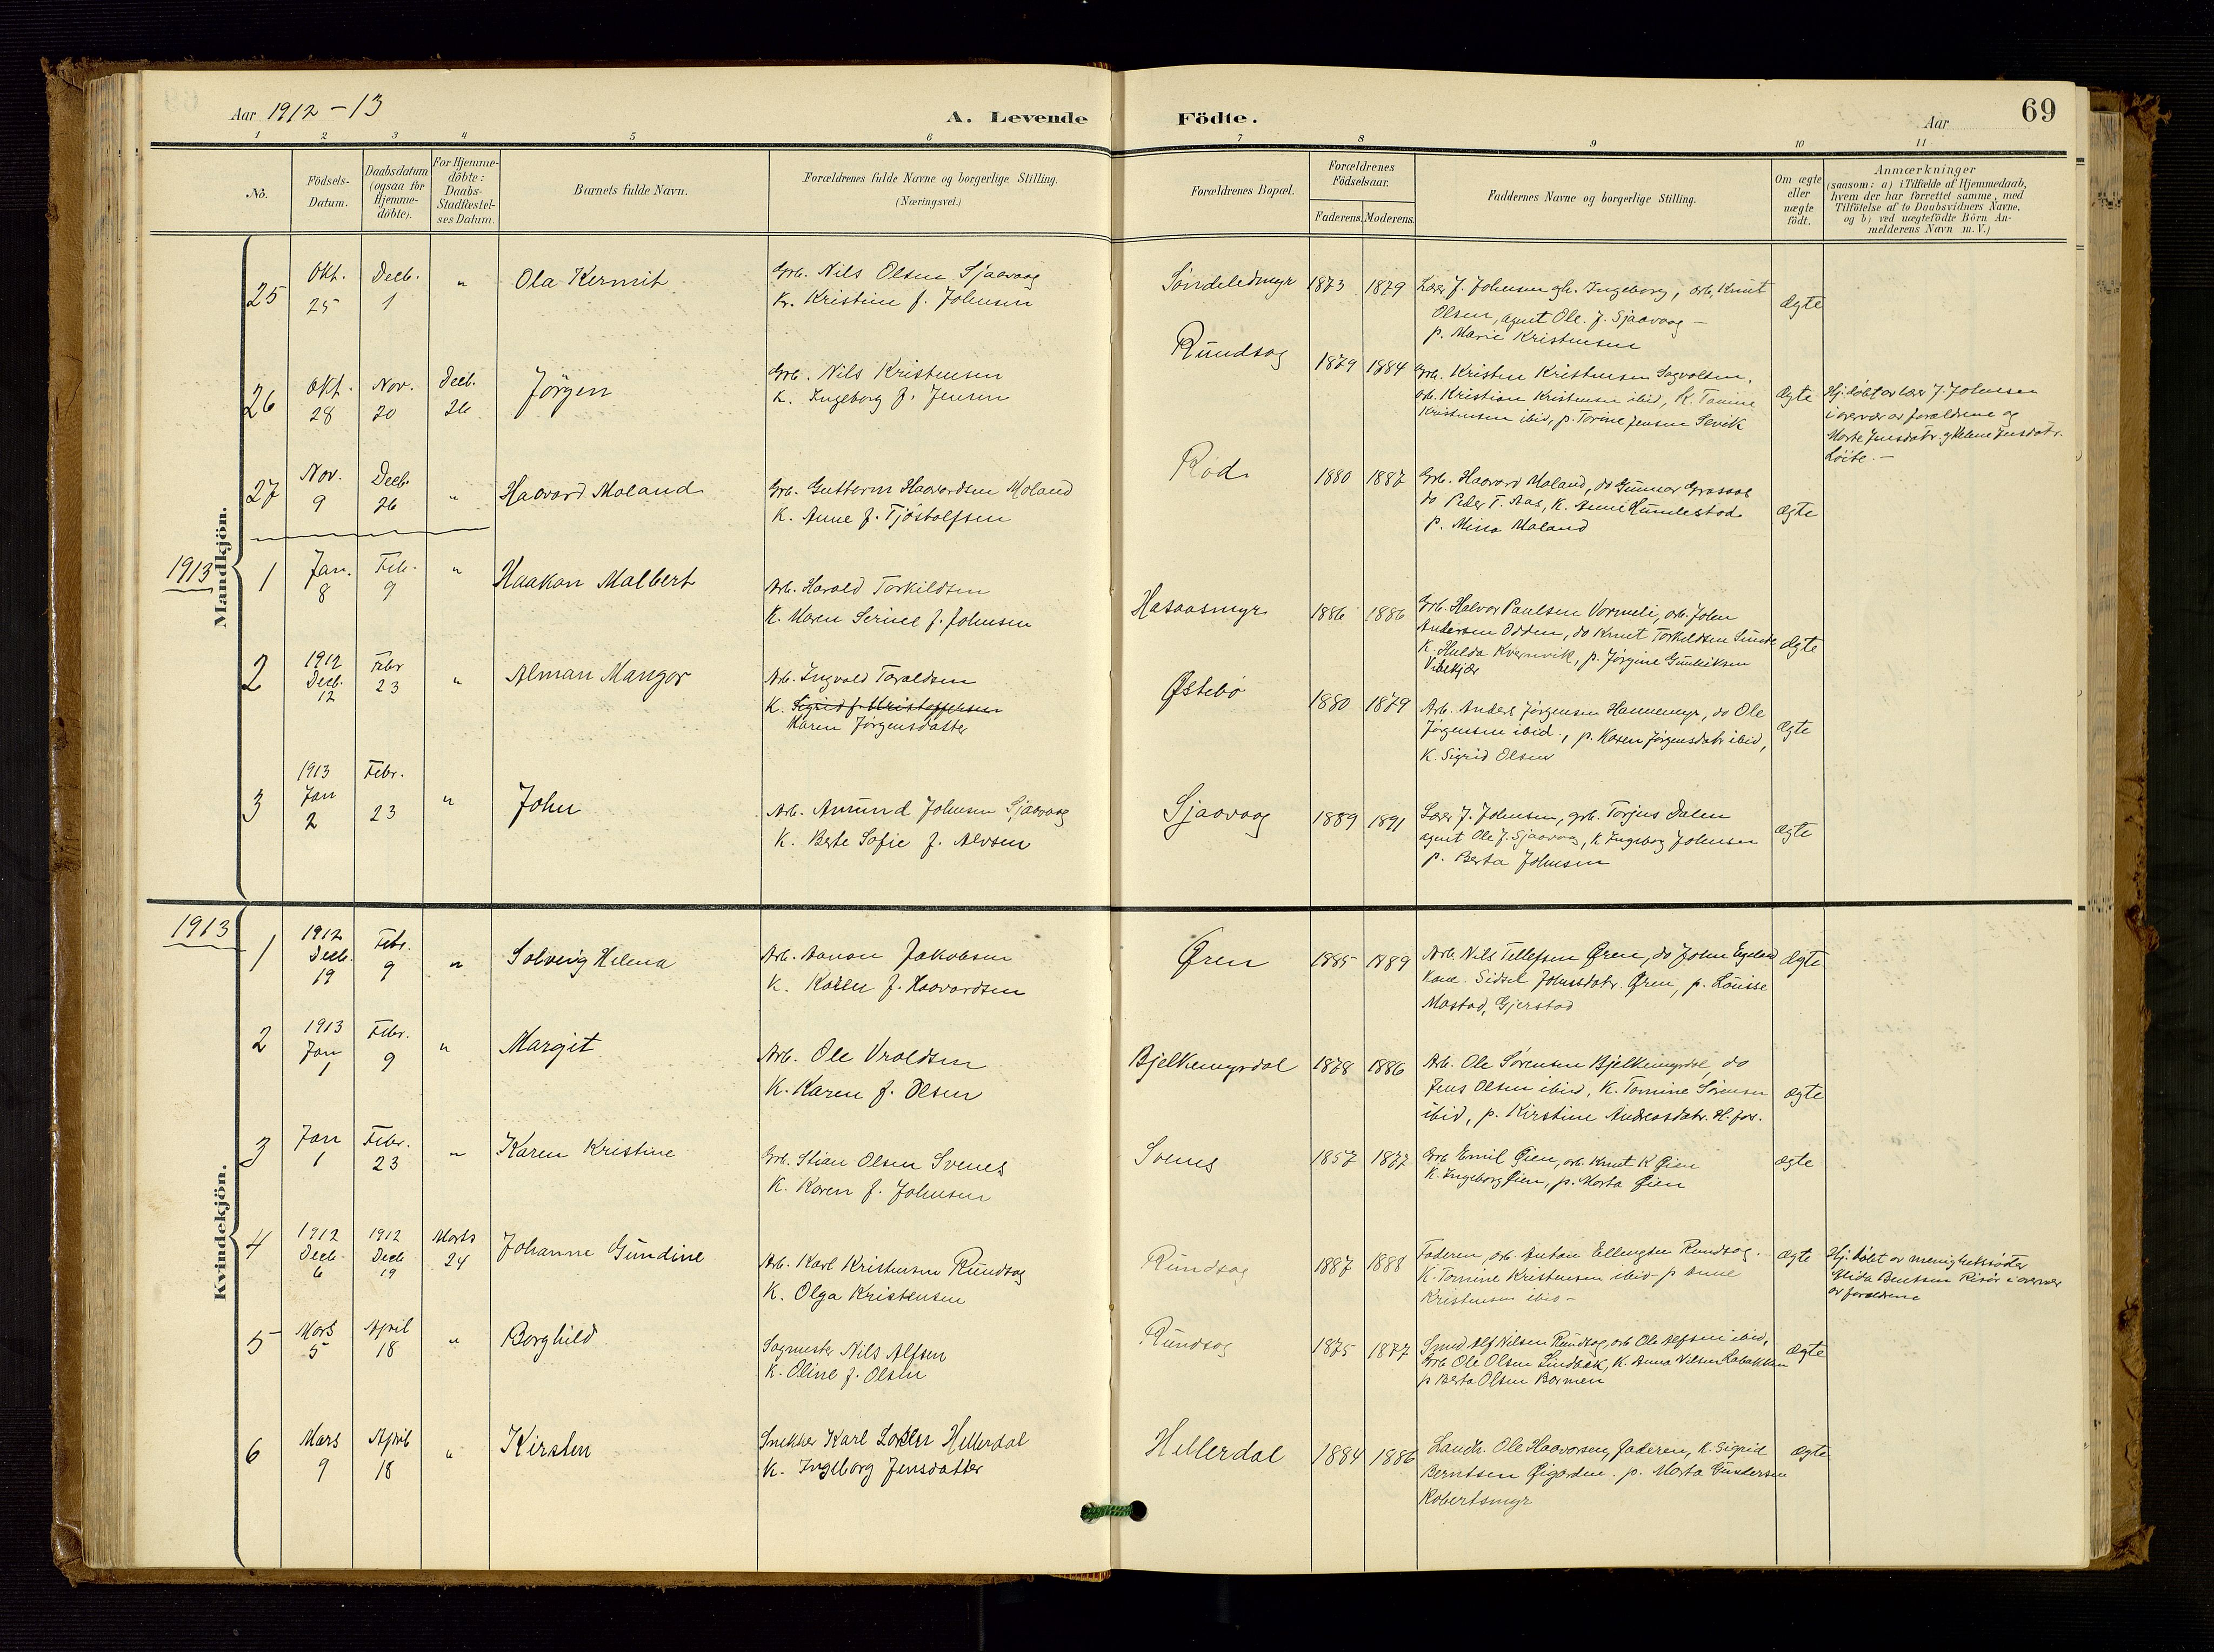 Aar 1912 - 13
A. Levende Födte.
Aar
69
1 2 3 4 5 6 7 8 9 10 11
No.
Födsels-
Datum.
Daabsdatum
(ogsaa for
Hjemme-
döbte).
For Hjemme-
döbte:
Daabs-
Stadfæstel-
ses Datum.
Barnets fulde Navn.
Forældrenes fulde Navne og borgerlige Stilling.
(Næringsvei.)
Forældrenes Bopæl.
Forældrenes
Födselsaar.
Faderens. Moderens.
Faddernes Navne og borgerlige Stilling.
Om ægte
eller
uægte
födt.
Anmærkninger
(saasom: a) i Tilfælde af Hjemmedaab,
hvem der har forrettet samme, med
Tilföielse af to Daabsvidners Navne.
og b) ved uægtefödte Börn An-
melderens Navn m. V.)
Mandkjön.
25
Okt.
25
Decb.
1
"
Ola Kermit
Grb. Nils Olsen Sjaavaag
K. Kristine f. Johnsen
Söndeledmyr
1873 1879
Lærer J. Johnsen gh. Ingeborg, arb. Knut
Olsen, agent Ole J. Sjaavaag -
p. Marie Kristensen
ægte
26
Okt.
28
Nov.
20
Decb.
26
Jörgen
Grb. Nils Kristensen
K. Ingeborg f. Jensen
Rundsag
1879 1884
Grb. Kristen Kristensen Sagvolden,
arb. Kristian Kristensen ibid, K. Tomine
Kristensen ibid, p. Torine Jensen Sevik
ægte
Hj. döbt av lærer J. Johnsen
i overvær av forældrene og
Marte Jensdatr. og Helene Jensdatr.
Löite. -
27
Nov.
9
Decb.
26
"
Haavard Moland
Grb. Guttorm Haavardsen Moland
K. Anne f. Tjöstolfsen
Röd
1880 1887
Grb. Haavard Moland, do Gunnar Graasaas
do Peder T. Aas, K. Anne Humlestad
p. Mina Moland
ægte
1913
1
Jan.
8
Feb.
9
"
Haakon Malbert
Arb. Harald Torkildsen
K. Maren Serine f. Johnsen
Hasaasmyr
1886 1886
Grb. Halvor Paulsen Vormeli, arb. John
Andersen Odden, do Knut Torkildsen Sunde
K. Hulda Kvernvik, p. Jörgine Gunleiksen
Vibekjær
ægte
2
1912
Decb.
12
Febr
23
"
Alman Mangor
Arb. Ingvald Taraldsen
K. Sigrid f. Kristoffersen
Karen Jörgensdatter
Østebö
1880 1879
Arb. Anders Jörgensen Hannemyr, do Ole
Jörgensen ibid., p. Karen Jörgensdatr ibid,
K. Sigrid Olsen
ægte
3
1913
Jan
2
Febr.
23
"
John
Arb. Amund Johnsen Sjaavaag
K. Berte Sofie f. Alvsen
Sjaavaag
1889 1891
Lærer J. Johnsen, grb. Torjus Dalen
agent Ole J. Sjaavaag, K. Ingeborg Johnsen
p. Berta Johnsen
ægte
1913
Kvindekjön.
1
1912
Decb.
19
Febr.
9
"
Solveig Helena
Arb. Aanon Jakobsen
K. Karen f. Haavardsen
Øren
1885 1889
Arb. Nils Tellefsen Øren, do John Egeland
Kone. Sidsel Johnsdatr. Øren, p. Louisse
Mostad, Gjerstad
ægte
2
1913
Jan
1
Febr.
9
"
Margit
Arb. Ole Vraldsen
K. Karen f. Olsen
Bjelkemyrdal
1878 1886
Arb. Ole Sörensen Bjelkemyrdal, do
Jens Olsen ibid, K. Tomine Sörensen
ibid, p. Kirstine Andreasdatr. H. for.
ægte
3
Jan
1
Febr.
23
"
Karen Kristine
Grb. Stian Olsen Svenes
K. Karen f. Johnsen
Svenes
1857 1877
Grb. Emil Øien, arb. Knut K Øien
K. Ingeborg Øien, p. Marta Øien
ægte
4
1912
Decb.
6
1912
Decb
19
Marts
24
Johanne Gundine
Arb. Karl Kristensen Rundsag
K. Olga Kristensen
Rundsag
1887 1888
Faderen, arb. Anton Ellingsen Rundsag.
K. Tomine Kristensen ibid - p Anne
Kristensen ibid -
ægte
Hj. döbt av menighetssöster
Alida Bentsen Risör i overvær
av forældrene
5
Mars
5
April
18
"
Borghild
Sagmester Nils Alfsen
K. Oline f. Olsen
Rundsag
1875 1877
Smed Alf Nilsen Rundsag, arb Ole Alfsen ibid,
Grb Ole Olsen Lindbæk, K. Anna Nilsen Labakken
p Berta Olsen Barmen
ægte
6
Mars
9
April
18
"
Kirsten
Snekker Karl Larsen Hellerdal
K. Ingeborg Jensdatter
Hellerdal
1884 1886
Landh. Ole Haavorsen, faderen, K. Sigrid
Berntsen Øigarden. p. Marta Gundersen
Robertsmyr
ægte